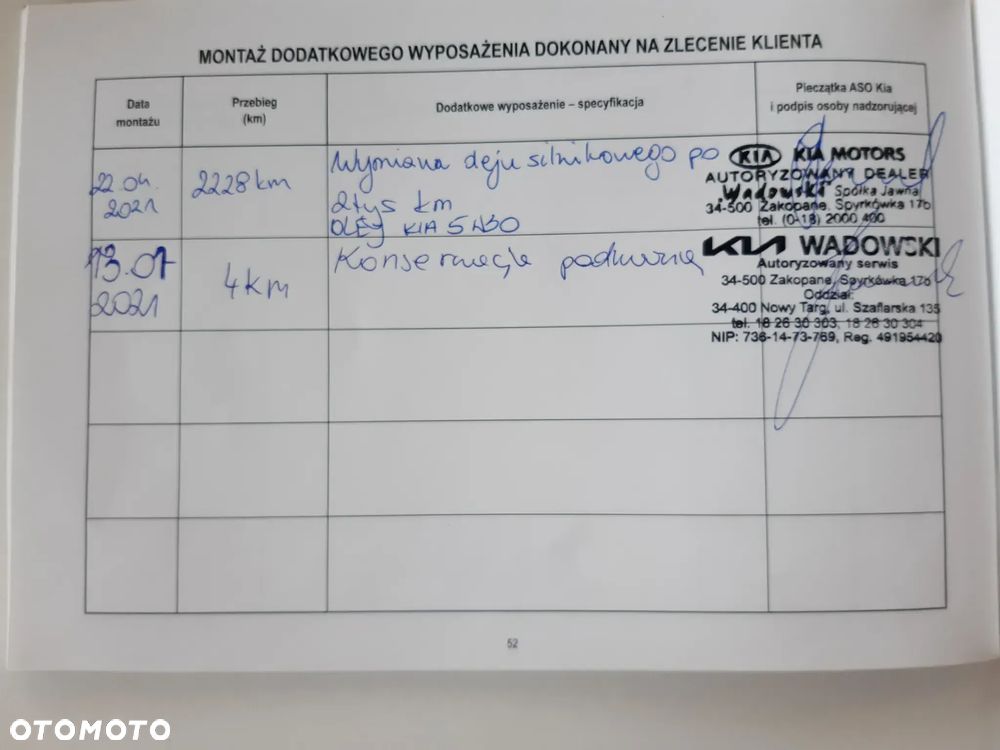 MONTAŻ DODATKOWEGO WYPOSAŻENIA DOKONANY NA ZLECENIE KLIENTA
Data
montażu
Przebieg
(km)
Dodatkowe wyposażenie – specyfikacja
Pieczątka ASO Kia
i podpis osoby nadzorującej
22.04.
2021
2228 km
Wymiana oleju silnikowego po
2tys km
OLEJ KIA 5W30
KIA KIA MOTORS
AUTORYZOWANY DEALER
Wadowski Spółka Jawna
34-500 Zakopane, Spyrkówka 17b
tel. (0-18) 2000 400
13.01
2021
4 km
Konserwacja
KIA WADOWSKI
Autoryzowany serwis
34-500 Zakopane, Spyrkówka 17b
Oddział:
34-400 Nowy Targ, ul. Szaflarska 135
tel. 18 26 30 303, 18 26 30 304
NIP: 736-14-73-769, Reg. 491954420
52
OTOMOTO